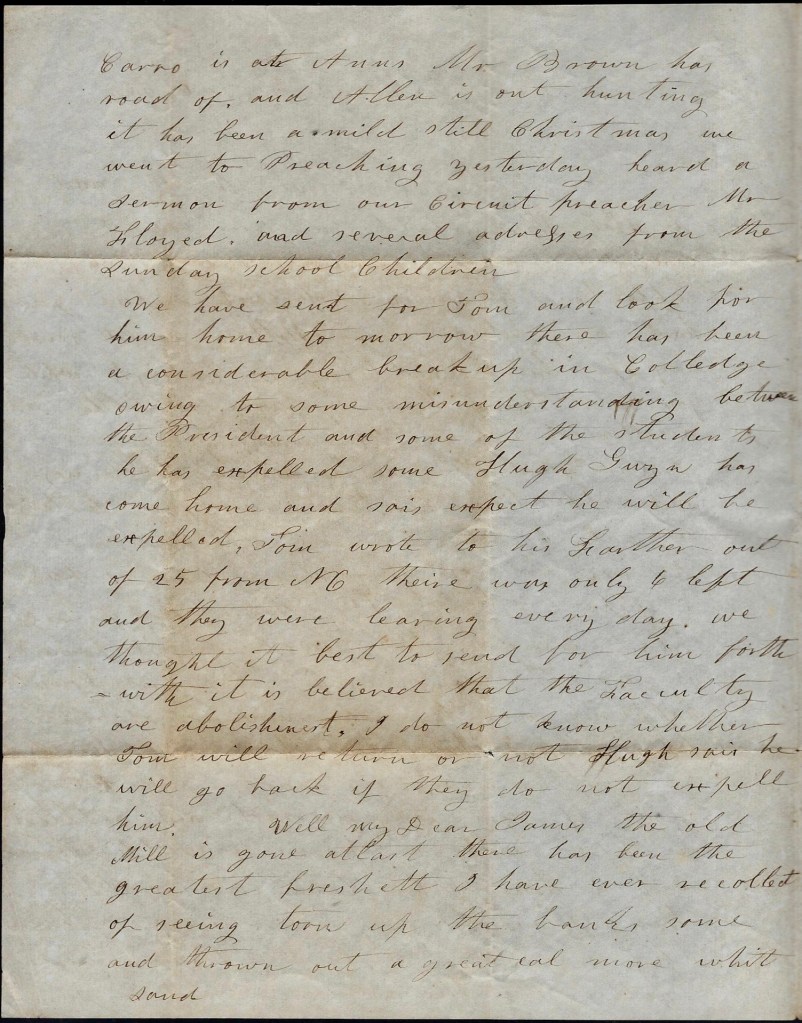 Carro is at Anns Mr Brown has
road of. and Allen is out hunting
it has been a mild still Christmas we
went to Preaching yesterday heard a
sermon from our Circuit preacher Mr
Floyed. and several adresses from the
Sunday school Children
We have sent for Tom and look for
him home to morrow there has been
a considerable breakup in Colledge
owing to some misunderstanding between
the President and some of the students
he has expelled some Hugh Gwyn has
come home and sais expect he will be
expelled, Tom wrote to his Farther out
of 25 from NC theire was only 6 left
and they were leaving every day. we
thought it best to send for him forth
-with it is believed that the Faculty
are abolishinest. I do not know whether
Tom will return or not Hugh sais he
will go back if they do not expell
him. Well my Dear James the old
Mill is gone atlast there has been the
greatest freshett I have ever recollect
of seeing toon up the banks some
and thrown out a great eal more whit
sand